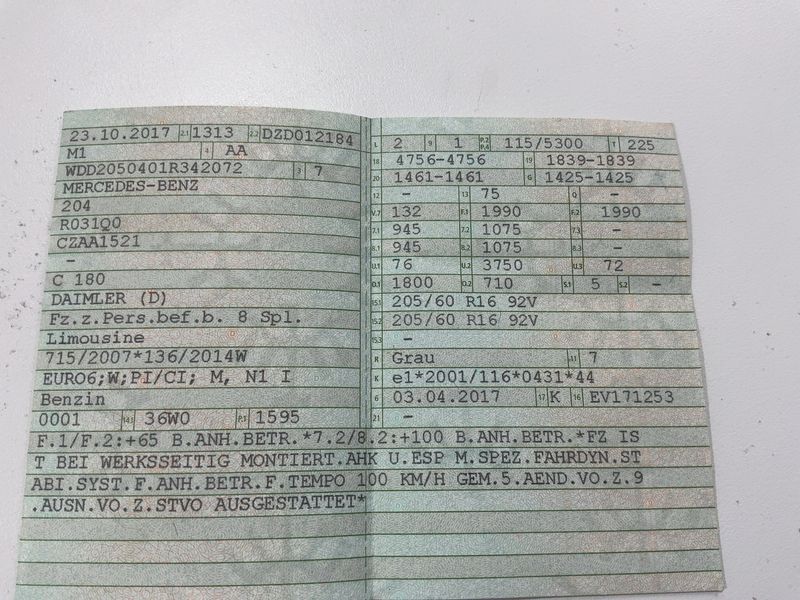 23.10.2017 2.1 1313 2.2 DZD012184
M1 4 AA
WDD2050401R342072 3 7
MERCEDES-BENZ
204
R031Q0
CZAA1521
–
C 180
DAIMLER (D)
Fz.z.Pers.bef.b. 8 Spl.
Limousine
715/2007*136/2014W
EURO6;W;PI/CI; M, N1 I
Benzin
0001 14.1 36W0 P.1 1595
L 2 9 1 P.2 P.4 115/5300 T 225
18 4756-4756 19 1839-1839
20 1461-1461 G 1425-1425
12 – 13 75 Q –
V.7 132 F.1 1990 F.2 1990
7.1 945 7.2 1075 7.3 –
8.1 945 8.2 1075 8.3 –
U.1 76 U.2 3750 U.3 72
O.1 1800 O.2 710 S.1 5 S.2 –
15.1 205/60 R16 92V
15.2 205/60 R16 92V
15.3 –
R Grau 11 7
K e1*2001/116*0431*44
6 03.04.2017 17 K 16 EV171253
21 –
F.1/F.2:+65 B.ANH.BETR.*7.2/8.2:+100 B.ANH.BETR.*FZ IS
T BEI WERKSSEITIG MONTIERT.AHK U.ESP M.SPEZ.FAHRDYN.ST
ABI.SYST.F.ANH.BETR.F.TEMPO 100 KM/H GEM.5.AEND.VO.Z.9
.AUSN.VO.Z.STVO AUSGESTATTET*